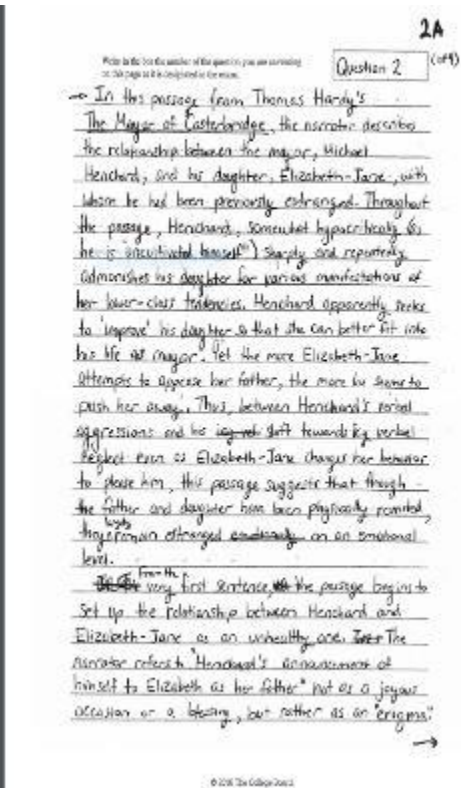 2A
Write in the box the number of the question you are answering
on this page as it is designated in the exam.
Question 2
(1 of 4)
In this passage from Thomas Hardy's
The Mayor of Casterbridge, the narrator describes
the relationship between the mayor, Michael
Henchard, and his daughter, Elizabeth-Jane, with
whom he had been previously estranged. Throughout
the passage, Henchard, somewhat hypocritically (as
he is "uncultivated himself") sharply and repeatedly
admonishes his daughter for various manifestations of
her lower-class tendencies. Henchard apparently seeks
to 'improve' his daughter so that she can better fit into
his life as mayor. Yet the more Elizabeth-Jane
attempts to appease her father, the more he seems to
push her away. Thus, between Henchard's verbal
aggressions and his shift towards icy verbal
neglect even as Elizabeth-Jane changes her behavior
to please him, this passage suggests that though
the father and daughter have been physically reunited,
they remain estranged on an emotional
level.
From the very first sentence, the passage begins to
set up the relationship between Henchard and
Elizabeth-Jane as an unhealthy one. The
narrator refers to "Henchard's announcement of
himself to Elizabeth as her father" not as a joyous
occasion or a blessing, but rather as an "enigma."
© 2016 The College Board.